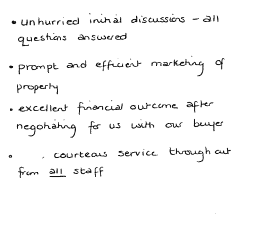 • unhurried initial discussions - all
questions answered
• prompt and efficient marketing of
property
• excellent financial outcome after
negotiating for us with our buyer
• . courteous service throughout
from all staff